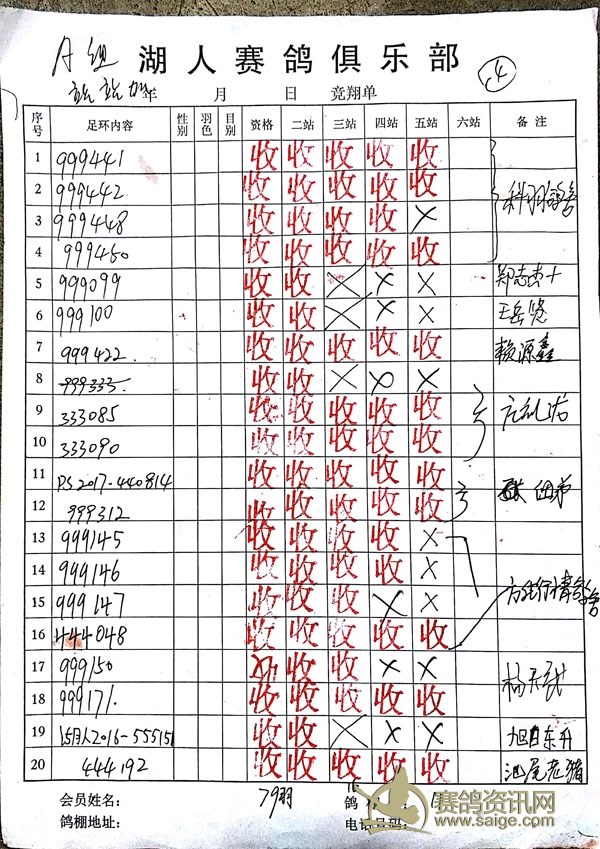 A组 湖人赛鸽俱乐部 ④
年 月 日 竞翔单
序号 足环内容 性别 羽色 目别 资格 二站 三站 四站 五站 六站 备注
1 999441 收 收 收 收 收
2 999442 收 收 收 收 收
3 999448 收 收 收 收 ×
4 999460 收 收 收 收 收
5 999099 收 收 × × ×
6 999100 收 收 × × × 王岳悠
7 999422 收 收 收 收 收 赖源鑫
8 999333 收 收 × × ×
9 333085 收 收 收 收 收
10 333090 收 收 收 收 收
11 PS 2017-440814 收 收 收 收 收
12 999312 收 收 收 收 收
13 999145 收 收 收 收 ×
14 999146 收 收 收 收 ×
15 999147 收 收 收 × ×
16 444048 收 收 收 收 收
17 999150 收 收 收 × ×
18 999171. 收 收 收 收 收
19 2016-555151 收 收 × × × 旭日东升
20 444192 收 收 收 收 收 汕尾老猪
会员姓名: 79羽
鸽棚地址: 电话号码:
赛鸽资讯网
www.saige.com